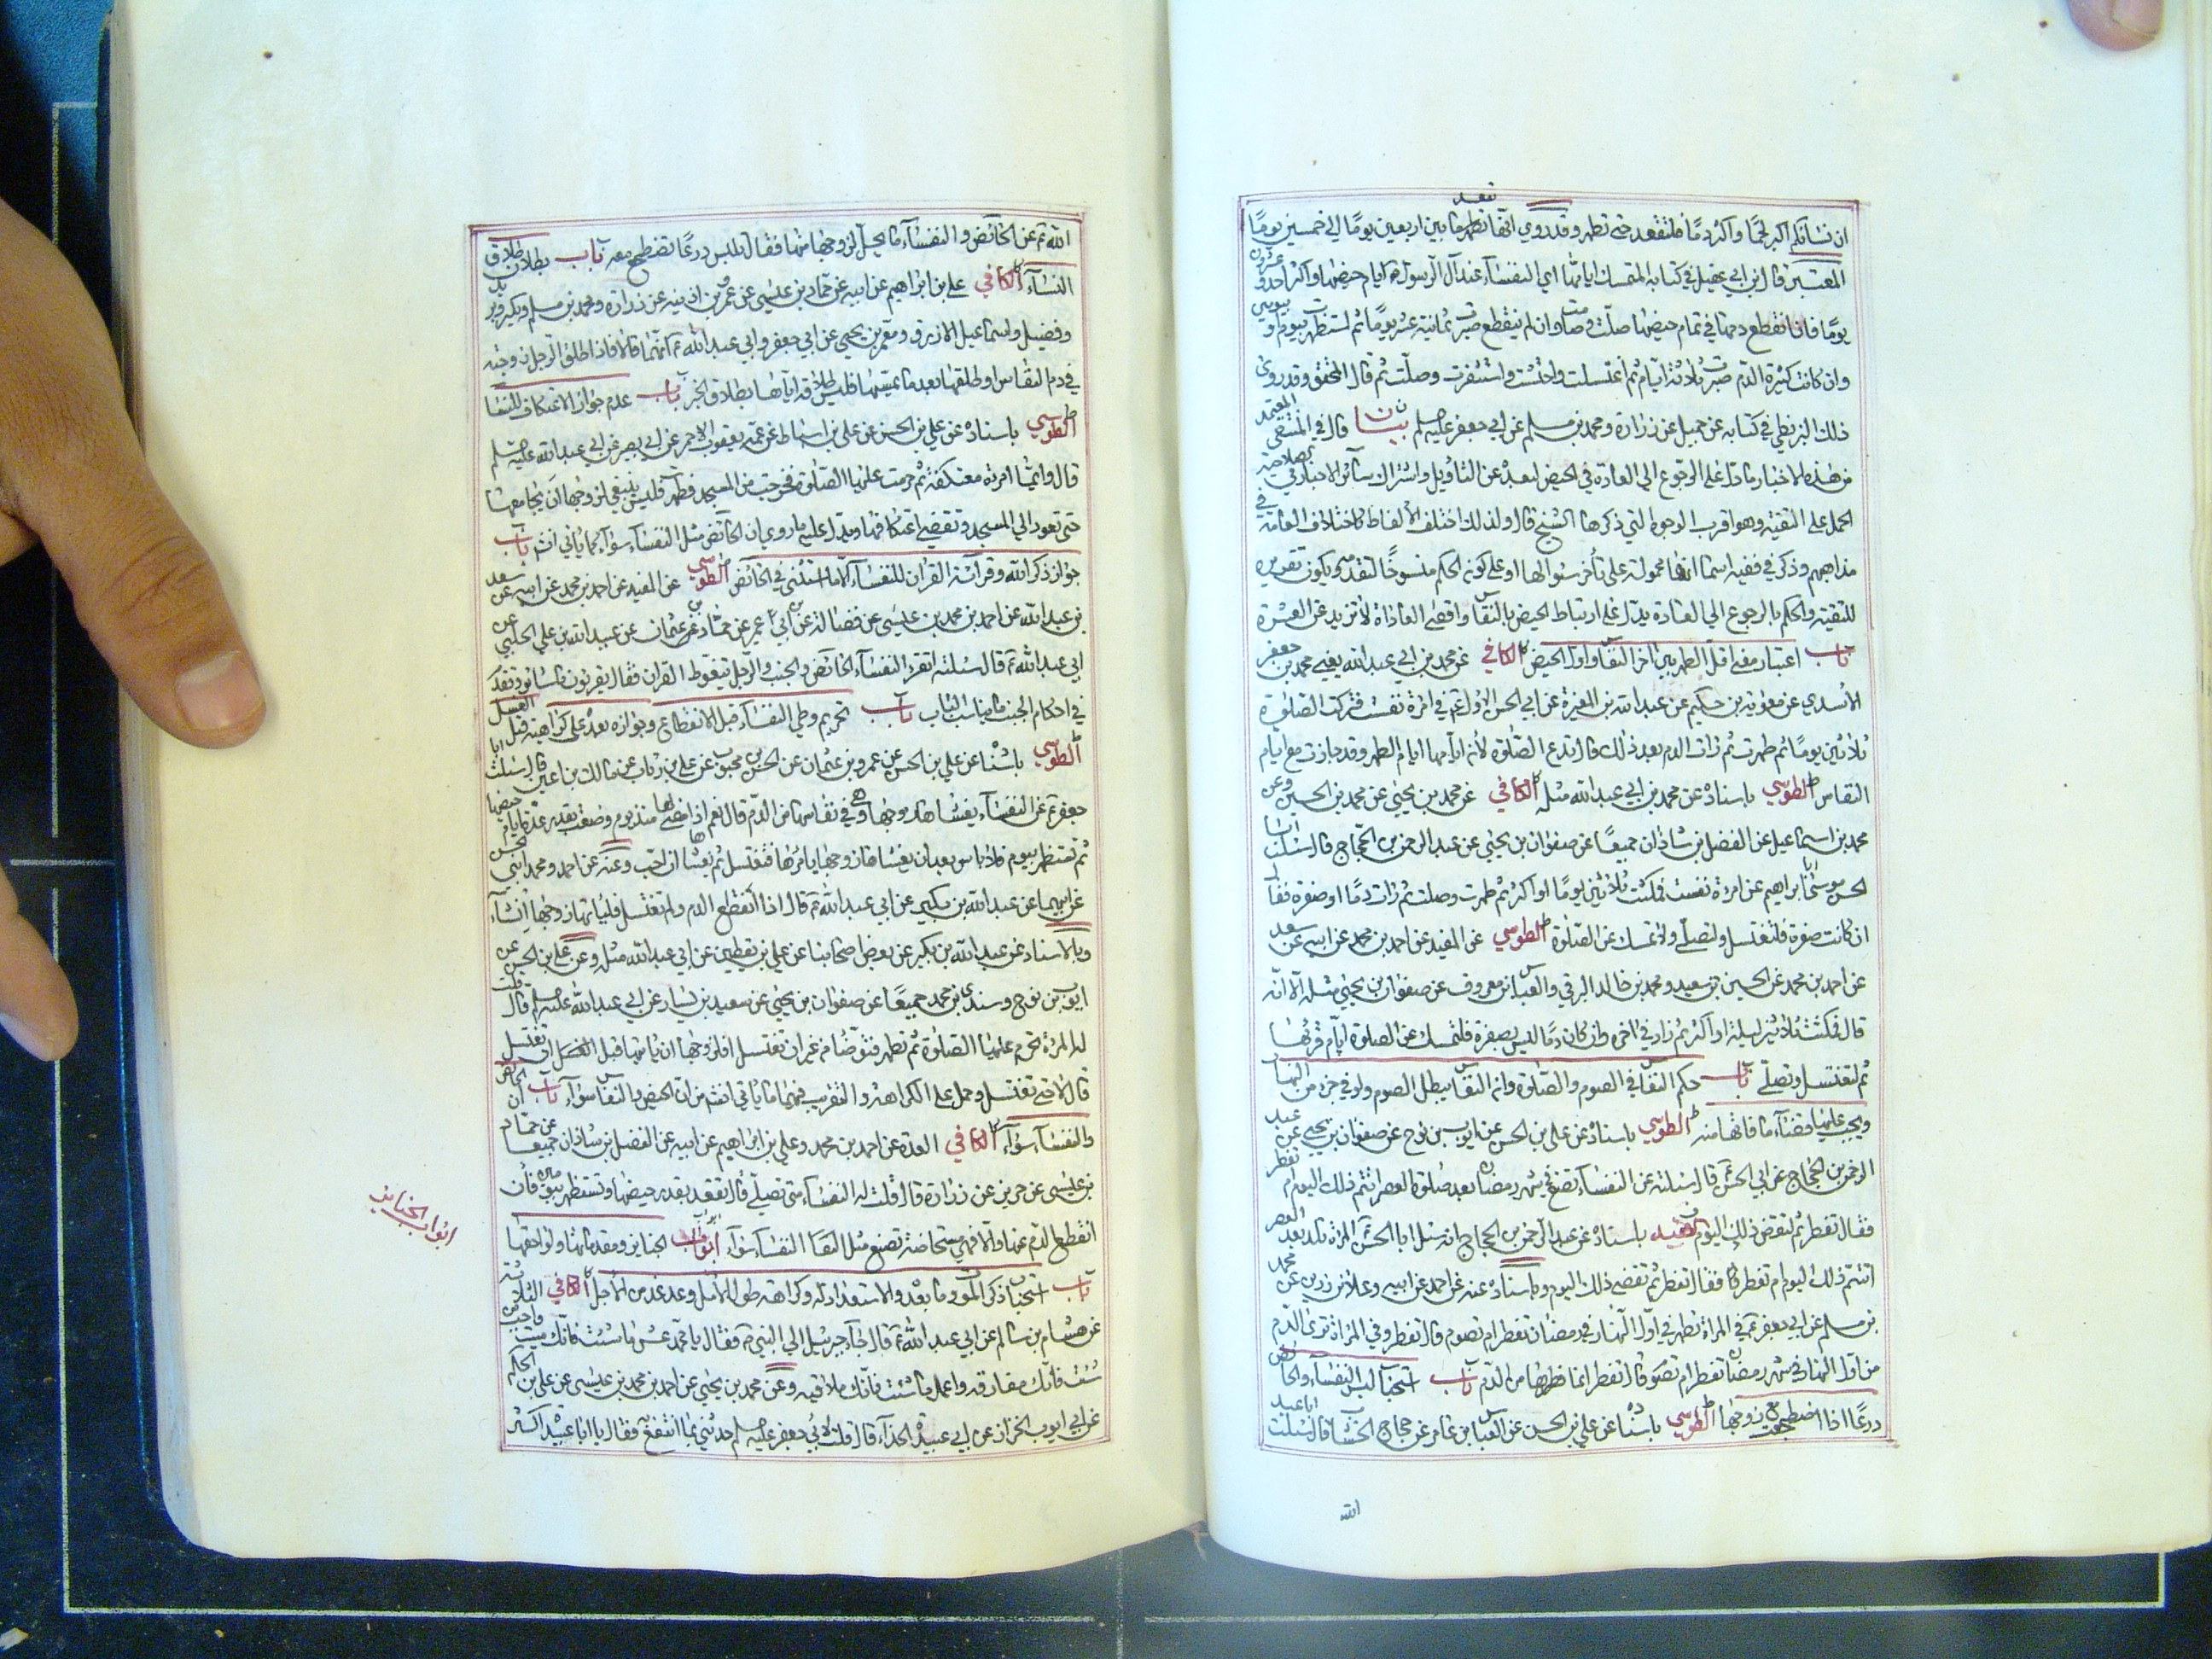 ان نسائكم اكبر لحما واكثر دما فلتقعد حتى تطهر وقد روي انها تقعد ما بين اربعين يوما الى خمسين يوما
المعتبر قال ابن ابي عقيل في كتابه المتمسك ايامها اي النفساء عند آل الرسول ايام حيضها واكثره احد وعشرون
يوما فان انقطع دمها في تمام حيضها صلت وصامت وان لم ينقطع صبرت ثمانية عشر يوما ثم استظهرت بيوم او يومين
وان كانت كثيرة الدم صبرت ثلاثة ايام ثم اغتسلت واحتشت واستثفرت وصلت ثم قال المحقق وقد روى
ذلك البزنطي في كتابه عن جميل عن زرارة ومحمد بن مسلم عن ابي جعفر عليه السلم بيان قال في المنتقى المعتمد
من هذه الاخبار ما دل على الرجوع الى العادة في الحيض لبعده عن التأويل واشتراك سائر الاخبار في صلاحية
الحمل على التقية وهو اقرب الوجوه التي ذكرها الشيخ قال ولذلك اختلف الالفاظ كاختلاف العامة في
مذاهبهم وذكر في فقيه اسما انها محمولة على تأخر سؤالها او على كون الحكم منسوخا لتقدمه ويكون تقريره
للتقية والحكم بالرجوع الى العادة يدل على ارتباط الحيض بالنفاس واقصى العادات لا تزيد عن العشرة
باب اعتبار مضي اقل الطهر بين آخر النفاس واول الحيض الكافي عن محمد بن ابي عبد الله يعني محمد بن جعفر
الاسدي عن معوية بن حكيم عن عبد الله بن المغيرة عن ابي الحسن الاول ع في امرأة نفست فتركت الصلوة
ثلاثين يوما ثم طهرت ثم رات الدم بعد ذلك قال تدع الصلوة لان ايامها ايام الطهر وقد جازت مع ايام
النفاس الطوسي باسناده عن محمد بن ابي عبد الله مثله الكافي عن محمد بن يحيى عن محمد بن الحسين وعن
محمد بن اسماعيل عن الفضل بن شاذان جميعا عن صفوان بن يحيى عن عبد الرحمن بن الحجاج قال سئلت ابا
الحسن موسى ابراهيم عن امرأة نفست فمكثت ثلاثين يوما او اكثر ثم طهرت وصلت ثم رات دما او صفرة فقال
ان كانت صفرة فلتغتسل ولتصل ولا تمسك عن الصلوة الطوسي عن المفيد عن احمد بن محمد عن ابيه عن سعد
عن احمد بن محمد عن الحسين بن سعيد ومحمد بن خالد البرقي والعباس بن معروف عن صفوان بن يحيى مثله الا انه
قال فمكثت ثلاثين ليلة او اكثر ثم زاد في اخره وان كان دما ليس بصفرة فلتمسك عن الصلوة ايام قرئها
ثم لتغتسل وتصلي باب حكم النفاس في الصوم والصلوة وانه النفاس يبطل الصوم ولو في جزء من النهار
ويجب عليها قضاء ما فاتها منه الطوسي باسناده عن علي بن الحسن عن ايوب بن نوح عن صفوان بن يحيى عن عبد
الرحمن بن الحجاج عن ابي الحسن ع قال سئلته عن النفساء تضع في شهر رمضان بعد صلوة العصر اتتم ذلك اليوم ام تفطر
فقال تفطر ثم لتقض ذلك اليوم الفقيه باسناده عن عبد الرحمن بن الحجاج انه سئل ابا الحسن ع عن المرأة تلد بعد العصر
اتتم ذلك اليوم ام تفطر فقال تفطر ثم تقضي ذلك اليوم وباسناده عنه عن احمد عن ابيه وعلا بن رزين عن محمد
بن مسلم عن ابي جعفر ع في المرأة تطهر في اول النهار في رمضان تفطر ام تصوم قال تفطر وفي المرأة ترى الدم
من اول النهار في شهر رمضان تفطر ام تصوم قال تفطر انما فطرها من الدم باب استحباب لبس النفساء والحائض
درعا اذا اضطجعت مع زوجها الطوسي باسناده عن علي بن الحسن عن العباس بن عامر عن حجاج الخشاب قال سئلت ابا عبد
الله
الله ع عن الحائض والنفساء ما يحل لزوجها منها فقال تلبس درعا ثم تضطجع معه باب بطلان طلاق
النساء الكافي علي بن ابراهيم عن ابيه عن حماد بن عيسى عن عمر بن اذينه عن زرارة ومحمد بن مسلم وبكير وبريد
وفضيل واسماعيل الازرق ومعمر بن يحيى عن ابي جعفر وابي عبد الله ع انهما قالا اذا طلق الرجل زوجته
في دم النفاس او طلقها بعد ما يمسها فليس طلاقه اياها بطلاق الخبر باب عدم جواز الاعتكاف للنفساء
الطوسي باسناده عن علي بن الحسن عن علي بن اسباط عن عمه يعقوب الاحمر عن ابي بصير عن ابي عبد الله عليه السلم
قال وايما امرأة معتكفة ثم حرمت عليها الصلوة فخرجت من المسجد فطهرت فليس ينبغي لزوجها ان يجامعها
حتى تعود الى المسجد وتقضي اعتكافها ويدل عليه ما روي ان الحائض مثل النفساء سواء كما ياتي انشه باب
جواز ذكر الله وقرآئة القران للنفساء الا ما استثني في الحائض الطوسي عن المفيد عن احمد بن محمد عن ابيه عن سعد
بن عبد الله عن احمد بن محمد بن عيسى عن فضالة عن ابن ابي عمير عن حماد بن عثمان عن عبيد الله بن علي الحلبي عن
ابي عبد الله ع قال سئلته اتقرأ النفساء والحائض والجنب والرجل يتغوط القران فقال يقرئون ما شاؤا وقد تقدم
في احكام الجنب ما يناسب الباب باب تحريم وطي النفساء قبل الانقطاع وجوازه بعده على كراهية قبل الغسل
الطوسي باسناده عن علي بن الحسن عن عمرو بن عثمان عن الحسن بن محبوب عن علي بن رئاب عن مالك بن اعين قال سئلت ابا
جعفر ع عن النفساء يغشاها زوجها وهي في نفاسها من الدم قال نعم اذا مضى لها منذ يوم وضعت بقدر عدة ايام حيضها
ثم تستظهر بيوم فلا باس بعد ان يغشاها زوجها يامرها فتغتسل ثم يغشاها ان احب وعنه عن احمد ومحمد ابني الحسن
عن ابيهما عن عبد الله بن بكير عن ابي عبد الله ع قال اذا انقطع الدم ولم تغتسل فليأتها زوجها ان شاء
وبالاسناد عن عبد الله بن بكير عن بعض اصحابنا عن علي بن يقطين عن ابي عبد الله مثله وعن علي بن الحسن عن
ايوب بن نوح وسندي بن محمد جميعا عن صفوان بن يحيى عن سعيد بن يسار عن ابي عبد الله عليه السلم قال قلت
له المرأة تحرم عليها الصلوة ثم تطهر فتوضأ من غير ان تغتسل افلزوجها ان ياتيها قبل ان تغتسل
قال لا حتى تغتسل وحمل على الكراهة والتقريب فيهما ما ياتي انشه من ان الحيض والنفاس سواء باب ان الحائض
والنفساء سواء الكافي العدة عن احمد بن محمد وعلي بن ابراهيم عن ابيه عن الفضل بن شاذان جميعا عن حماد
بن عيسى عن حريز عن زرارة قال قلت له النفساء متى تصلي قال تقعد بقدر حيضها وتستظهر بيومين فان
انقطع الدم عنها والا فهي مستحاضة تصنع مثل النفساء سواء ابواب الجنايز ومقدماتها ولواحقها
باب استحباب ذكر الموت وما بعده والاستعداد له وكراهة طول الامل وعد غد من الاجل الكافي الثلاثة
عن هشام بن سالم عن ابي عبد الله ع قال جاء جبرئيل الى النبي ص فقال يا محمد عش ما شئت فانك ميت واحبب من
شئت فانك مفارقه واعمل ما شئت فانك ملاقيه وعن محمد بن يحيى عن احمد بن محمد بن عيسى عن علي بن الحكم
عن ابي ايوب الخزاز عن ابي عبيدة الحذاء قال قلت لابي جعفر عليه السلم حدثني بما انتفع فقال يا ابا عبيدة اكثر
ابواب الجنايز